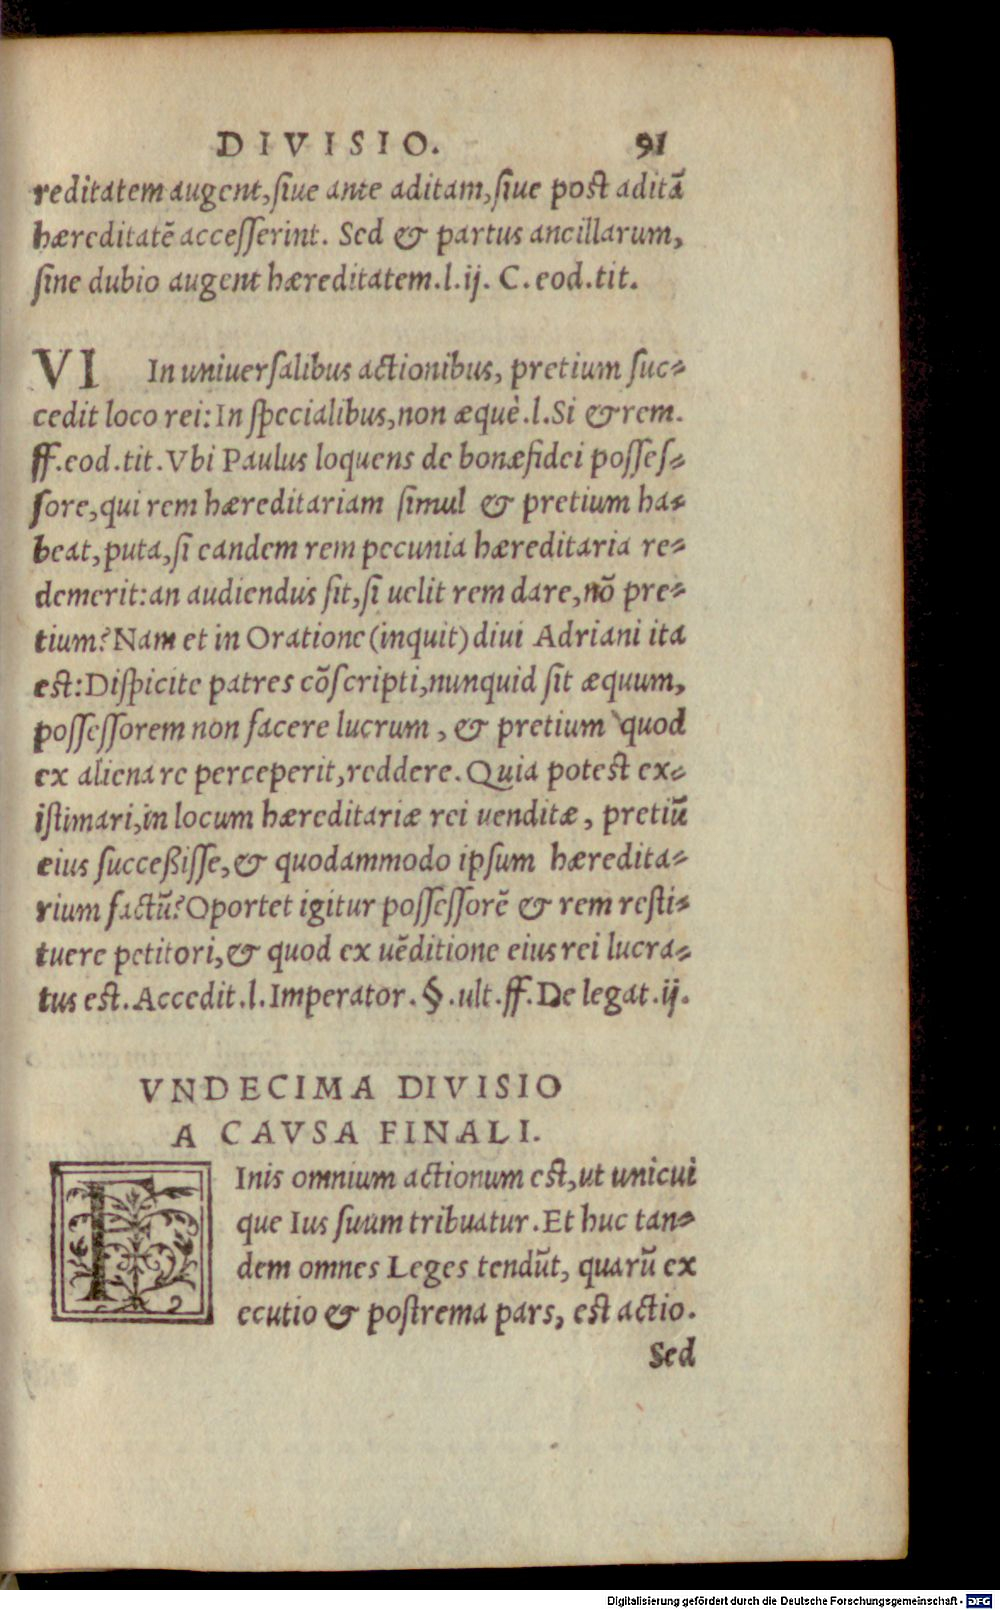 DIVISIO. 91
reditatem augent, ſiue ante aditam, ſiue post aditā
hæreditatē acceſſerint. Sed & partus ancillarum,
ſine dubio augent hæreditatem. l. ij. C. eod. tit.
VI In uniuerſalibus actionibus, pretium ſuc-
cedit loco rei: In ſpecialibus, non æquè. l. Si & rem.
ff. eod. tit. Vbi Paulus loquens de bonæfidei poſſeſ-
ſore, qui rem hæreditariam ſimul & pretium ha-
beat, puta, ſi eandem rem pecunia hæreditaria re-
demerit: an audiendus ſit, ſi uelit rem dare, nō pre-
tium? Nam et in Oratione (inquit) diui Adriani ita
est: Diſpicite patres cōſcripti, nunquid ſit æquum,
poſſeſſorem non facere lucrum, & pretium quod
ex aliena re perceperit, reddere. Quia potest ex-
iſtimari, in locum hæreditariæ rei uenditæ, pretiū
eius ſucceßiſſe, & quodammodo ipſum hæredita-
rium factū? Oportet igitur poſſeſſorē & rem reſti-
tuere petitori, & quod ex uēditione eius rei lucra-
tus est. Accedit. l. Imperator. §. ult. ff. De legat. ij.
VNDECIMA DIVISIO
A CAVSA FINALI.
FInis omnium actionum est, ut unicui
que Ius ſuum tribuatur. Et huc tan-
dem omnes Leges tendūt, quarū ex
ecutio & poſtrema pars, est actio.
Sed
Digitalisierung gefördert durch die Deutsche Forschungsgemeinschaft - DFG